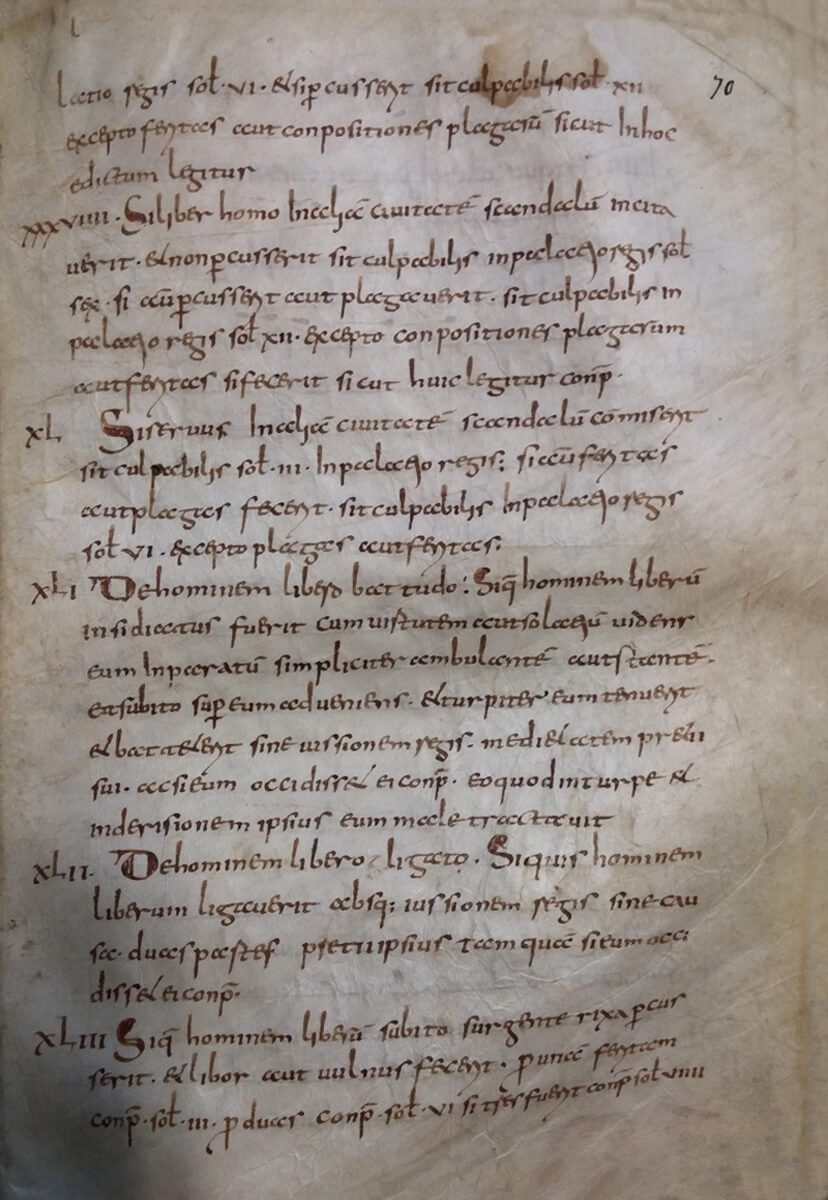 70
latio regis sol̃ · VI · et si p̱cusserit sit culpabilis sol̃ · XII
excepto feritas aut conpositiones plagarũ sicut in hoc
edictum legitur
XXXVIIII · Si liber homo in aliã ciuitatẽ scandalũ incita
uerit · et non p̱cusserit sit culpabilis in palatio regis sol̃
sex · si aũ p̱cusserit aut plagauerit · sit culpabilis in
palatio regis sol̃ XII · excepto conpositiones plagarum
aut feritas si fecerit sicut huic legitur conp̃ ·
XL Si seruus in aliã ciuitatẽ scandalũ cõmiserit
sit culpabilis sol̃ · III · in palatio regis; si aũ feritas
aut plagas fecerit · sit culpabilis in palatio regis
sol̃ VI · excepto plagas aut feritas;
XLI De hominem libero battudo : Si q̃ hominem liberũ
insidiatus fuerit cum uirtutem aut solatiũ uidens
eum inparatũ simpliciter ambulantẽ aut stantẽ ·
et subito sup̱ eum adueniens · et turpiter eum tenuerit
et battederit sine iussionem regis · medietatem pretii
sui · ac si eum occidisset ei conp̃ · eo quod in turpe et
inderisionem ipsius eum male tractauit
XLII · De hominem libero ligato · Si quis hominem
liberum ligauerit absq; iussionem regis sine cau
sa · duas partes pretii ipsius tam quã si eum occi
disset ei conp̃ ·
XLIII Si q̃ hominem liberũ subito surgente rixa p̱cus
serit · et libor aut uulnus fecerit · p̱ unã feritam
conp̃ · sol̃ · III · p̱ duas conp̃ · sol̃ · VI si tres fuerit conp̃ sol̃ VIIII